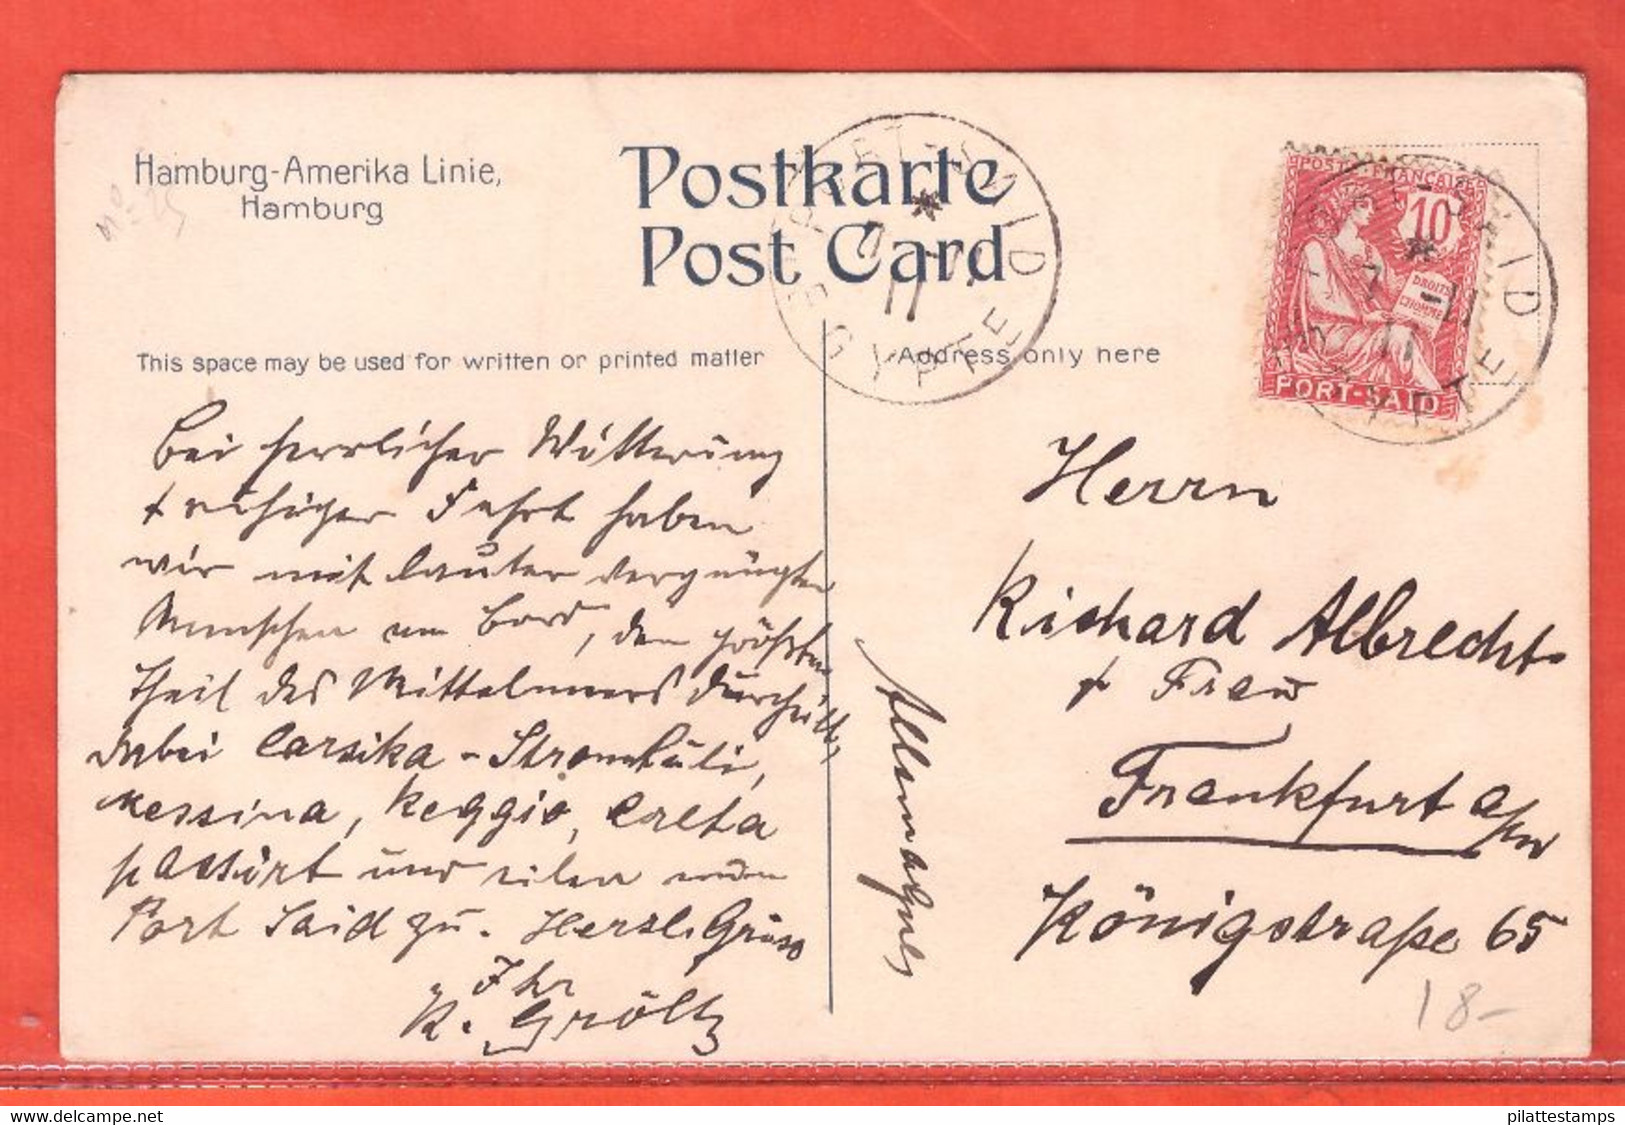 Hamburg-Amerika Linie,
Hamburg
Nº 25
Postkarte
Post Card
PORT-SAID
7 -11
11
EGYPTE
This space may be used for written or printed matter
Address only here
POSTE FRANÇAISE
10
DROITS
L'HOMME
PORT-SAID
PORT-SAID
7 -11
11
EGYPTE
Bei herrlicher Witterung
+ ruhiger Fahrt haben
wir mit lauter vergnügten
Menschen an Bord, den größten
Theil des Mittelmeers
dabei Corsika - Stromboli,
Messina, Reggio, Creta
passirt und eilen nun
Port Said zu. Herzl. Grüsse
Ihr
K. Gröltz
Herrn
Richard Albrecht
+ Frau
Frankfurt a/m
Königstraße 65
18-
delcampe.net
pilattestamps